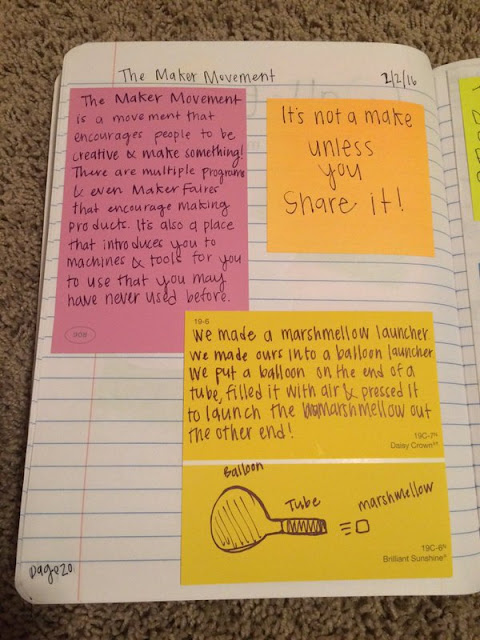 The Maker Movement
2/2/16
The Maker Movement
is a movement that
encourages people to be
creative & make something!
There are multiple programs
& even Maker Faires
that encourage making
products. It's also a place
that introduces you to
machines & tools for you
to use that you may
have never used before.
908
It's not a make
unless
you
share it!
19-6
We made a marshmellow launcher.
We made ours into a balloon launcher
We put a balloon on the end of a
tube, filled it with air & pressed it
to launch the marshmellow out
the other end!
19C-7
Daisy Crown
Balloon
Tube
marshmellow
19C-6
Brilliant Sunshine
page 20